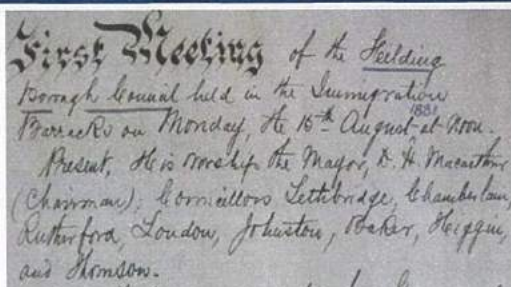 First Meeting of the Feilding
Borough Council held in the Immigration
Barracks on Monday, the 15th August 1881 at Noon.
Present, His Worship the Mayor, D. H. Macarthur
(Chairman); Councillors Lethbridge, Chamberlain,
Rutherford, London, Johnston, Baker,
and Thomson.